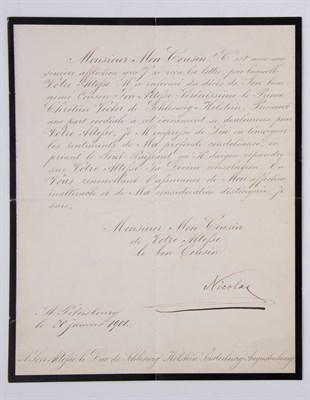 Monsieur Mon Cousin! C'est avec une
sincère affliction que J'ai reçu la lettre, par laquelle
Votre Altesse M'a informé du décès de Son bien
aimé Cousin Son Altesse Sérénissime le Prince
Chrétien Victor de Schleswig-Holstein. Prenant
une part cordiale à cet événement si douloureux pour
Votre Altesse, Je M'empresse de Lui en témoigner
les sentiments de Ma profonde condoléance, en
priant le Tout-Puissant qu'Il daigne répandre
sur Votre Altesse Sa Divine consolation. En
Vous renouvelant l'assurance de Mon affection
inaltérable et de Ma considération distinguée, Je
suis,
Monsieur Mon Cousin
de Votre Altesse
le bon Cousin
Nicolas
St. Pétersbourg
le Janvier 1901.
A Son Altesse le Duc de Schleswig Holstein Sonderbourg Augustenbourg